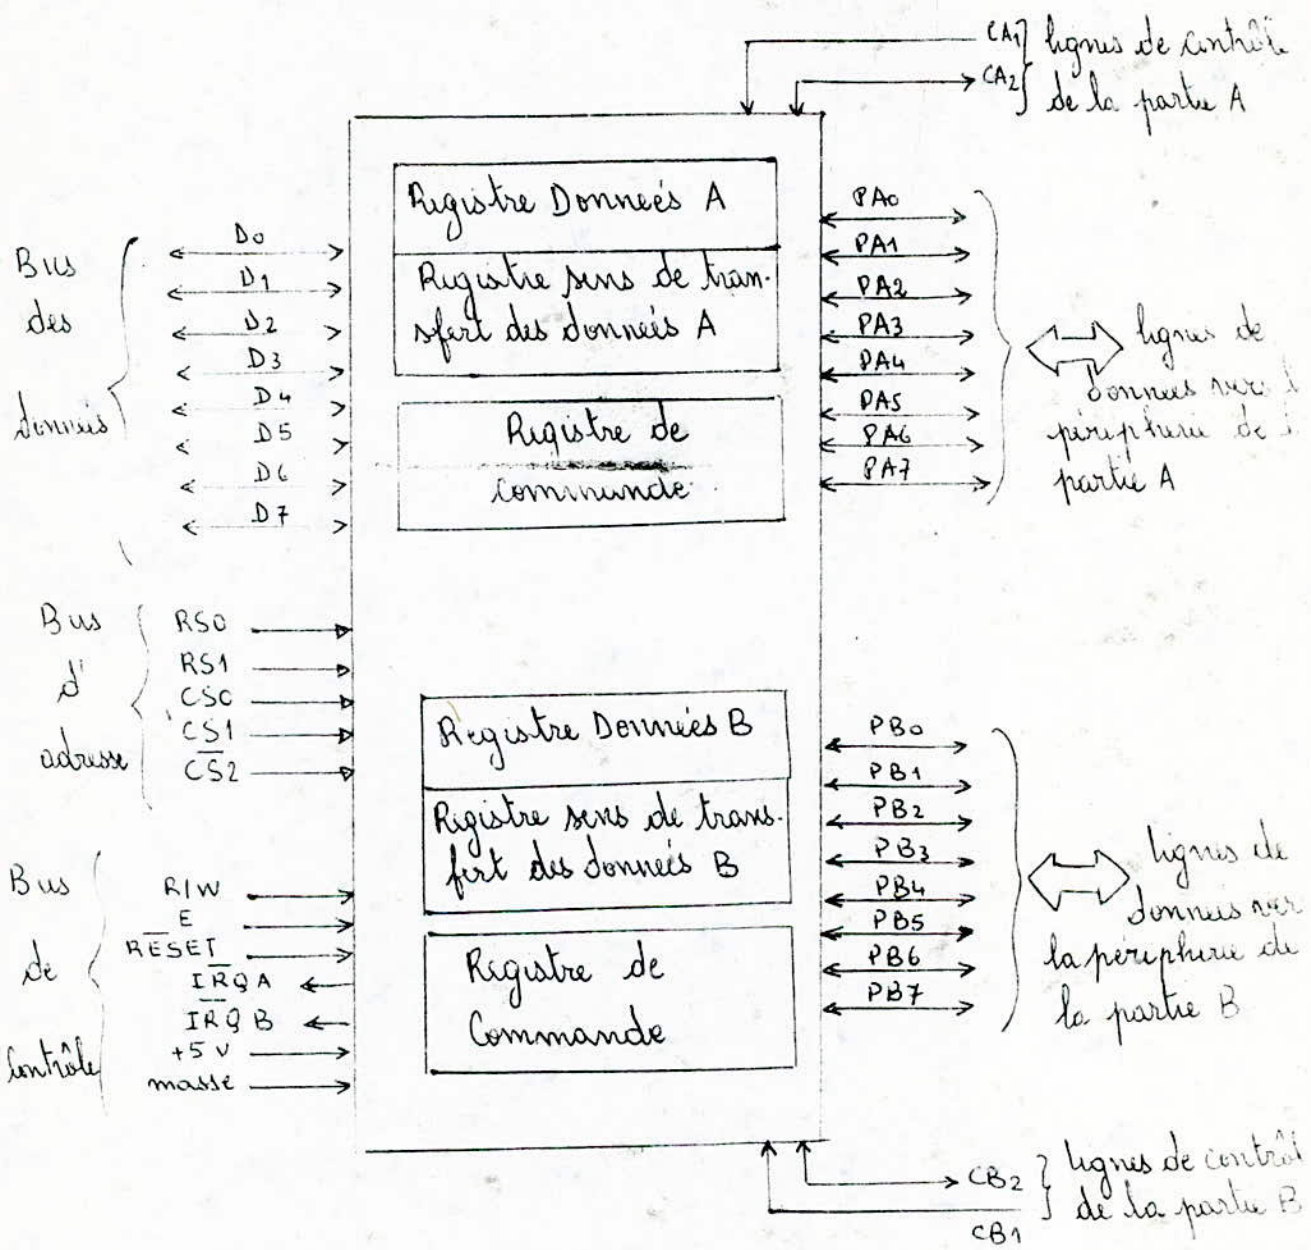 CA1 } lignes de contrôle
CA2 } de la partie A
Registre Données A
Registre sens de tran-
sfert des données A
Registre de
Commande
Bus
des
données
D0
D1
D2
D3
D4
D5
D6
D7
PA0
PA1
PA2
PA3
PA4
PA5
PA6
PA7
lignes de
données vers
périphérie de
partie A
Bus
d'
adresse
RS0
RS1
CS0
CS1
C̅S̅2̅
Registre Données B
Registre sens de trans-
fert des données B
Registre de
Commande
PB0
PB1
PB2
PB3
PB4
PB5
PB6
PB7
lignes de
données vers
la périphérie de
la partie B
Bus
de
Contrôle
R/W
E
R̅E̅S̅E̅T̅
I̅R̅Q̅ A
I̅R̅Q̅ B
+5 V
masse
CB2 } lignes de contrôl
CB1 } de la partie B